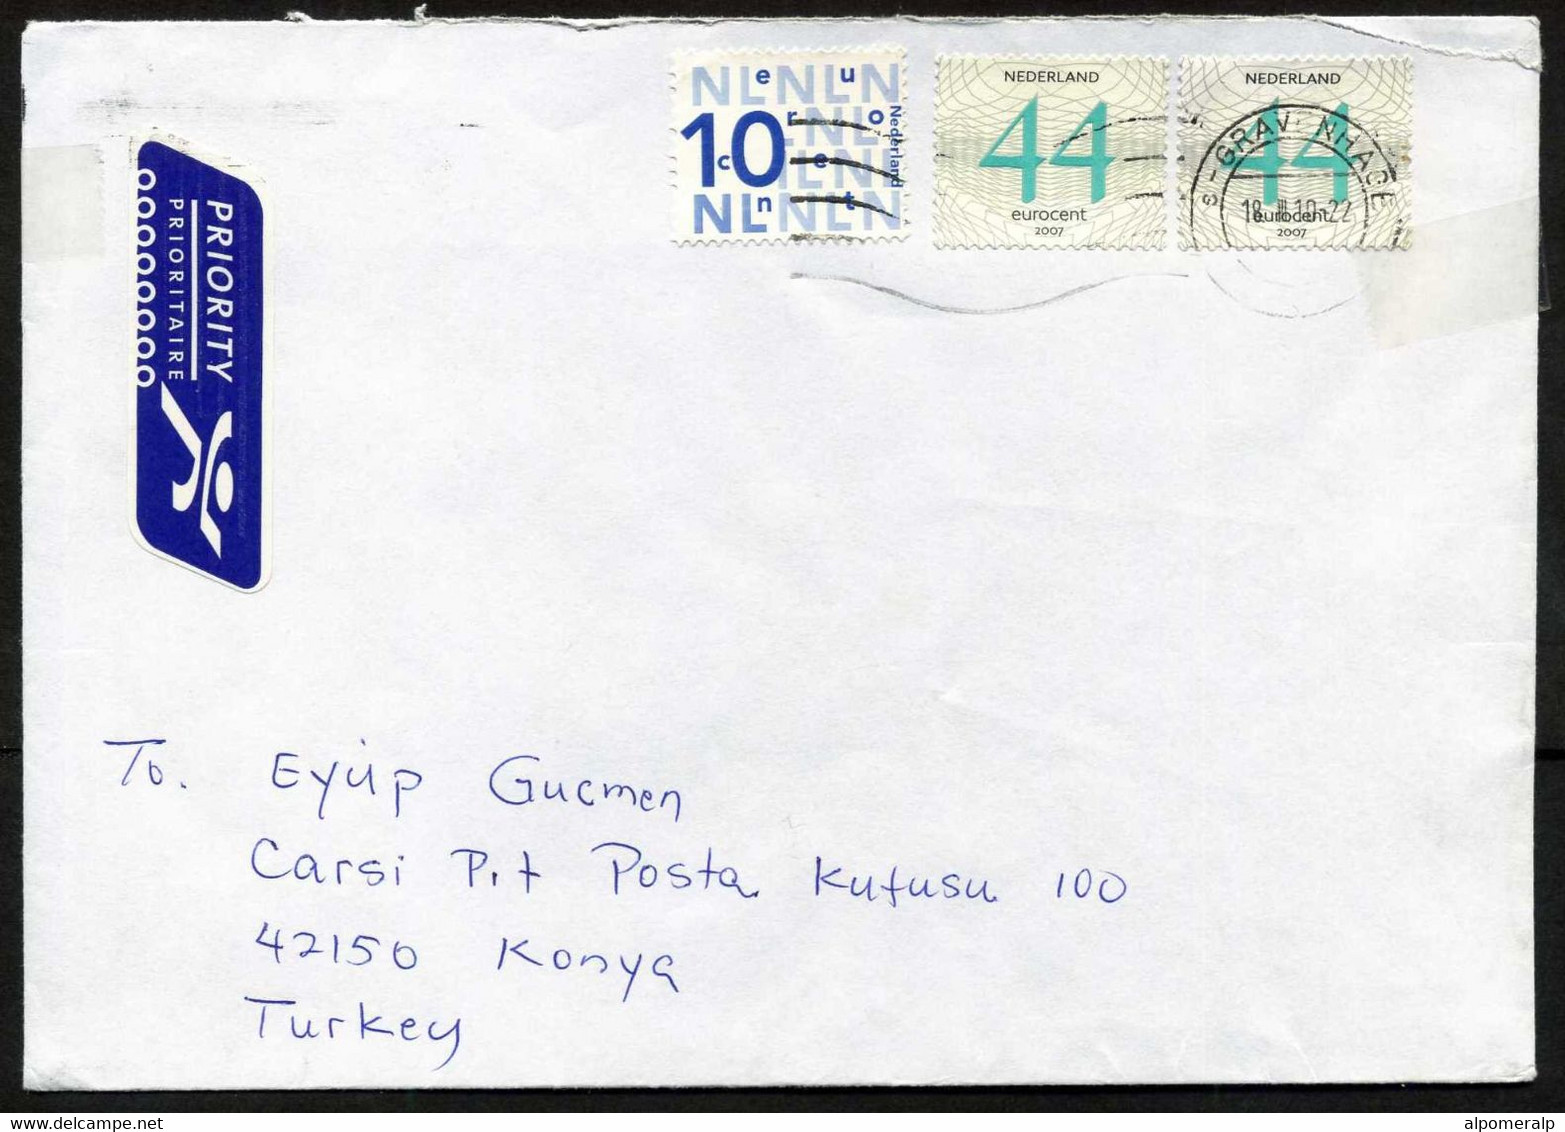 NLNLN
euro
10
cent
Nederland
NEDERLAND
44
eurocent
2007
NEDERLAND
44
eurocent
2007
S-GRAVENHAGE
18.III.10-22
PRIORITY
PRIORITAIRE
To. Eyüp Gucmen
Carsi P.t Posta Kutusu 100
42150 Konya
Turkey
alpomeralp